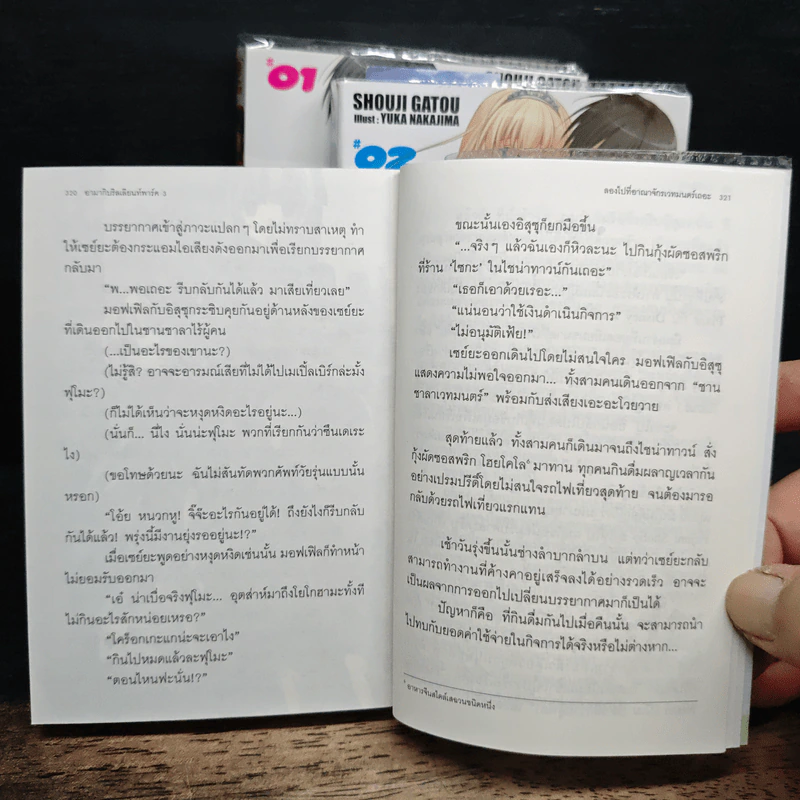 #01
SHOUJI GATOU
SHOUJI GATOU
Illust : YUKA NAKAJIMA
#02
320 อามากิบริลเลียนท์พาร์ค 3
บรรยากาศเข้าสู่ภาวะแปลกๆ โดยไม่ทราบสาเหตุ ทำ
ให้เซย์ยะต้องกระแอมไอเสียงดังออกมาเพื่อเรียกบรรยากาศ
กลับมา
“พ...พอเถอะ รีบกลับกันได้แล้ว มาเสียเที่ยวเลย”
มอฟเฟิลกับอิสุซุกระซิบคุยกันอยู่ด้านหลังของเซย์ยะ
ที่เดินออกไปในชานชาลาไร้ผู้คน
(...เป็นอะไรของเขานะ?)
(ไม่รู้สิ? อาจจะอารมณ์เสียที่ไม่ได้ไปเมเปิ้ลเบิร์กล่ะมั้ง
ฟุโมะ?)
(ก็ไม่ได้เห็นว่าจะหงุดหงิดอะไรอยู่นะ...)
(นั่นก็... นี่ไง นั่นน่ะฟุโมะ พวกที่เรียกกันว่าซึนเดเระ
ไง)
(ขอโทษด้วยนะ ฉันไม่สันทัดพวกศัพท์วัยรุ่นแบบนั้น
หรอก)
“โอ้ย หนวกหู! จิ๊จ๊ะอะไรกันอยู่ได้! ถึงยังไงก็รีบกลับ
กันได้แล้ว! พรุ่งนี้มีงานยุ่งรออยู่นะ!?”
เมื่อเซย์ยะพูดอย่างหงุดหงิดเช่นนั้น มอฟเฟิลก็ทำหน้า
ไม่ยอมรับออกมา
“เอ๋ น่าเบื่อจริงฟุโมะ... อุตส่าห์มาถึงโยโกฮามะทั้งที
ไม่กินอะไรสักหน่อยเหรอ?”
“โคร็อกเกะแกน่ะจะเอาไง”
“กินไปหมดแล้วละฟุโมะ”
“ตอนไหนฟะนั่น!?”
ลองไปที่อาณาจักรเวทมนตร์เถอะ 321
ขณะนั้นเองอิสุซุก็ยกมือขึ้น
“...จริงๆ แล้วฉันเองก็หิวละนะ ไปกินกุ้งผัดซอสพริก
ที่ร้าน ‘ไซกะ’ ในไชน่าทาวน์กันเถอะ”
“เธอก็เอาด้วยเรอะ...”
“แน่นอนว่าใช้เงินดำเนินกิจการ”
“ไม่อนุมัติเฟ้ย!”
เซย์ยะออกเดินไปโดยไม่สนใจใคร มอฟเฟิลกับอิสุซุ
แสดงความไม่พอใจออกมา... ทั้งสามคนเดินออกจาก “ชาน
ชาลาเวทมนตร์” พร้อมกับส่งเสียงเอะอะโวยวาย
สุดท้ายแล้ว ทั้งสามคนก็เดินมาจนถึงไชน่าทาวน์ สั่ง
กุ้งผัดซอสพริก โฮยโคโล⁶ มาทาน ทุกคนกินดื่มผลาญเวลากัน
อย่างเปรมปรีดิ์โดยไม่สนใจรถไฟเที่ยวสุดท้าย จนต้องมารอ
กลับด้วยรถไฟเที่ยวแรกแทน
เช้าวันรุ่งขึ้นนั้นช่างลำบากลำบน แต่ทว่าเซย์ยะกลับ
สามารถทำงานที่ค้างคาอยู่เสร็จลงได้อย่างรวดเร็ว อาจจะ
เป็นผลจากการออกไปเปลี่ยนบรรยากาศมาก็เป็นได้
ปัญหาก็คือ ที่กินดื่มกันไปเมื่อคืนนั้น จะสามารถนำ
ไปทบกับยอดค่าใช้จ่ายในกิจการได้จริงหรือไม่ต่างหาก...
อาหารจีนสไตล์เสฉวนชนิดหนึ่ง